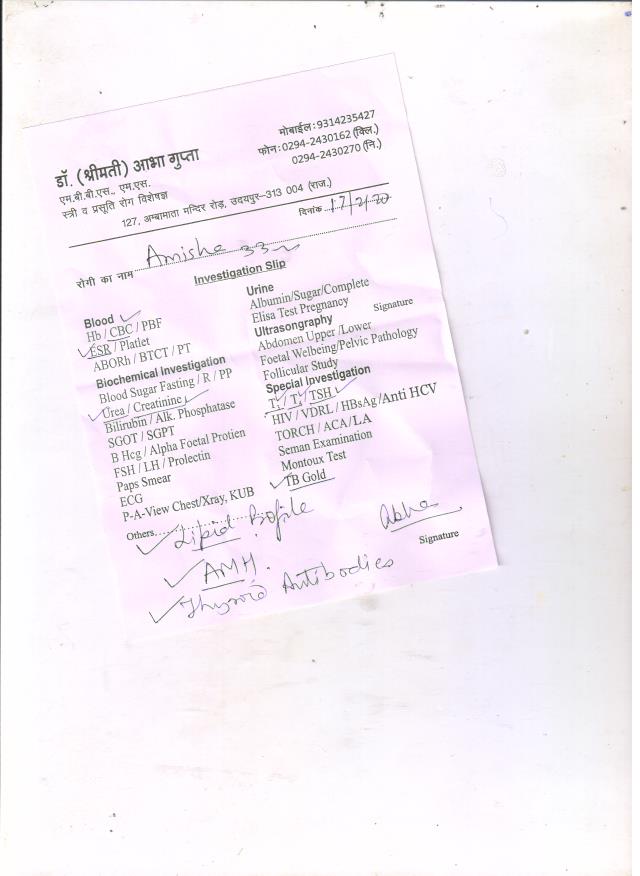 डॉ. (श्रीमती) आभा गुप्ता
एम.बी.बी.एस., एम.एस.
स्त्री व प्रसूति रोग विशेषज्ञ
मोबाईल:9314235427
फोन:0294-2430162 (क्लि.)
0294-2430270 (नि.)
127, अम्बामाता मन्दिर रोड़, उदयपुर-313 004 (राज.)
दिनांक 17/2/20
रोगी का नाम Amisha 33
Investigation Slip
Blood
Hb / CBC / PBF
ESR / Platlet
ABORh / BTCT / PT
Biochemical Investigation
Blood Sugar Fasting / R / PP
Urea / Creatinine
Bilirubin / Alk. Phosphatase
SGOT / SGPT
B Hcg / Alpha Foetal Protien
FSH / LH / Prolectin
Paps Smear
ECG
P-A-View Chest/Xray, KUB
Urine
Albumin/Sugar/Complete
Elisa Test Pregnancy
Signature
Ultrasongraphy
Abdomen Upper /Lower
Foetal Welbeing/Pelvic Pathology
Follicular Study
Special Investigation
T₃ / T₄ / TSH
HIV / VDRL / HBsAg / Anti HCV
TORCH / ACA/LA
Seman Examination
Montoux Test
TB Gold
Others Lipid Profile
AMH.
Thyroid Antibodies
Abha
Signature